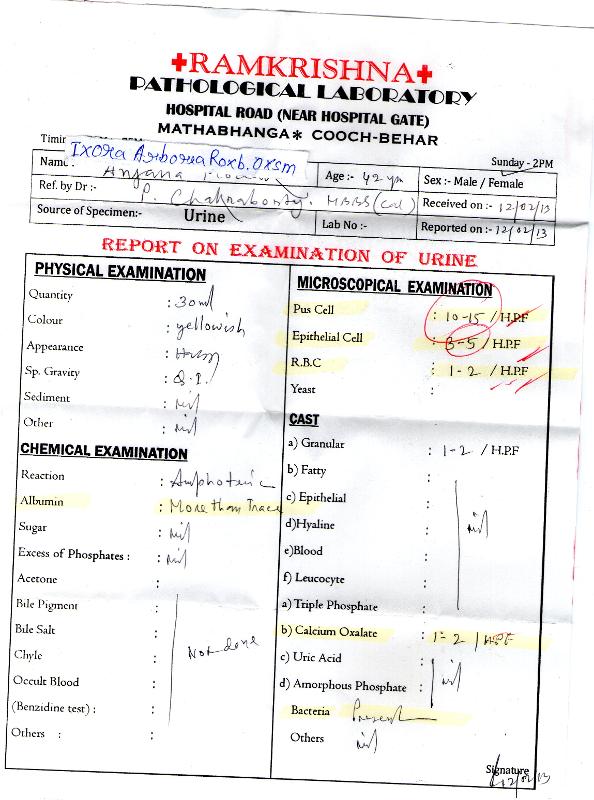 +RAMKRISHNA+
PATHOLOGICAL LABORATORY
HOSPITAL ROAD (NEAR HOSPITAL GATE)
MATHABHANGA* COOCH-BEHAR
Sunday - 2PM
Ixora Arborea Roxb. 0xsm
Name :- Anjana Age :- 42 yrs Sex :- Male / Female
Ref. by Dr :- P. Chakraborty. MBBS (Cal) Received on :- 12/02/13
Source of Specimen:- Urine Lab No :- Reported on :- 12/02/13
REPORT ON EXAMINATION OF URINE
PHYSICAL EXAMINATION
Quantity : 30 ml
Colour : yellowish
Appearance : Hazy
Sp. Gravity : Q.I.
Sediment : nil
Other : nil
CHEMICAL EXAMINATION
Reaction : Amphoteric
Albumin : More than Trace
Sugar : nil
Excess of Phosphates : nil
Acetone :
Bile Pigment :
Bile Salt :
Chyle : Not done
Occult Blood :
(Benzidine test) :
Others :
MICROSCOPICAL EXAMINATION
Pus Cell : 10-15 / H.P.F
Epithelial Cell : 3-5 / H.P.F
R.B.C : 1-2 / H.P.F
Yeast :
CAST
a) Granular : 1-2 / H.P.F
b) Fatty :
c) Epithelial :
d)Hyaline : nil
e)Blood :
f) Leucocyte :
a) Triple Phosphate :
b) Calcium Oxalate : 1-2 / H.P.F
c) Uric Acid :
d) Amorphous Phosphate : nil
Bacteria Present
Others nil
Signature
12/02/13